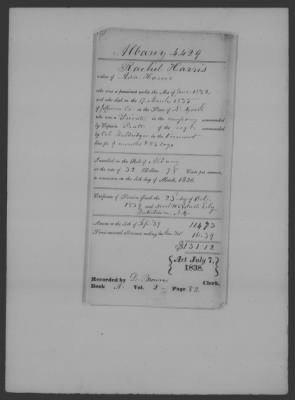 Albany 4429
Rachel Harris
widow of Asa Harris
who was a pensioner under the Act of June 1832
and who died on the 17 March 1835
of Jefferson Co. in the State of N. York
who was a Private in the company commanded
by Captain of the regt commanded
by Col. in the Vermont
line for 9 months & 23 days
Inscribed on the Roll of Albany
at the rate of 32 Dollars 78 Cents per annum,
to commence on the 4th day of March, 1836.
Certificate of Pension issued the 23 day of Oct.
1838 and
N.Y.
Arrears to the 4th of Sep. 39 114.73
Semi-annual allowance ending 16.39
$131.12
{Act July 7, 1838.}
Recorded by D. Brown Clerk,
Book A. Vol. 2 Page 82